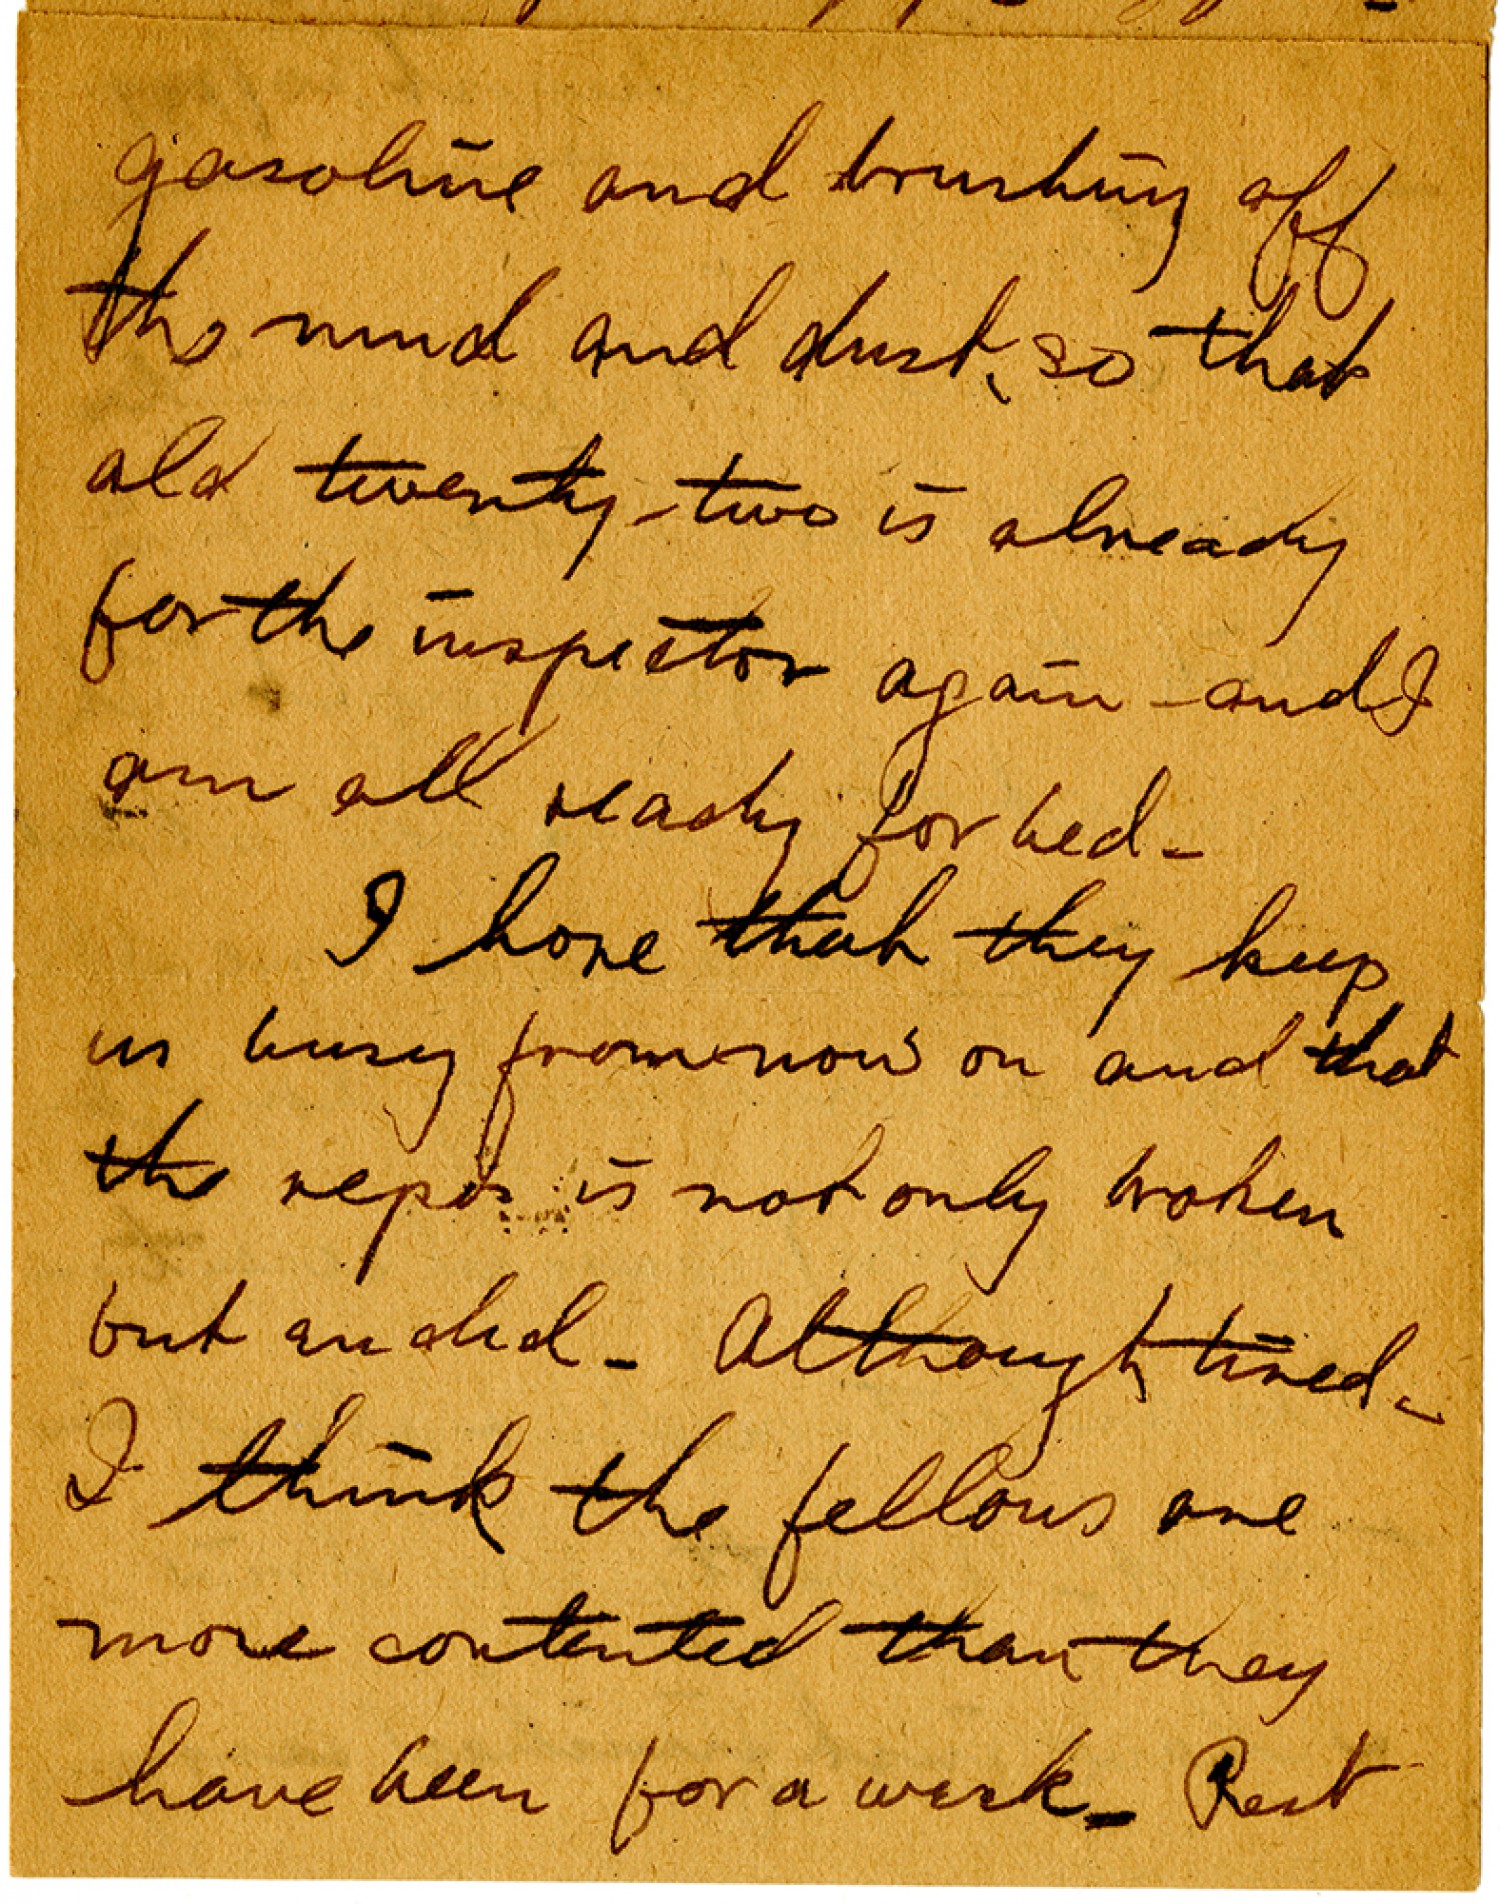 gasoline and brushing off
the mud and dust, so that
old twenty-two is already
for the inspector again - and I
am all ready for bed -
I hope that they keep
us busy from now on and that
the repos is not only broken
but ended - Although tired -
I think the fellows are
more contented than they
have been for a week - Rest